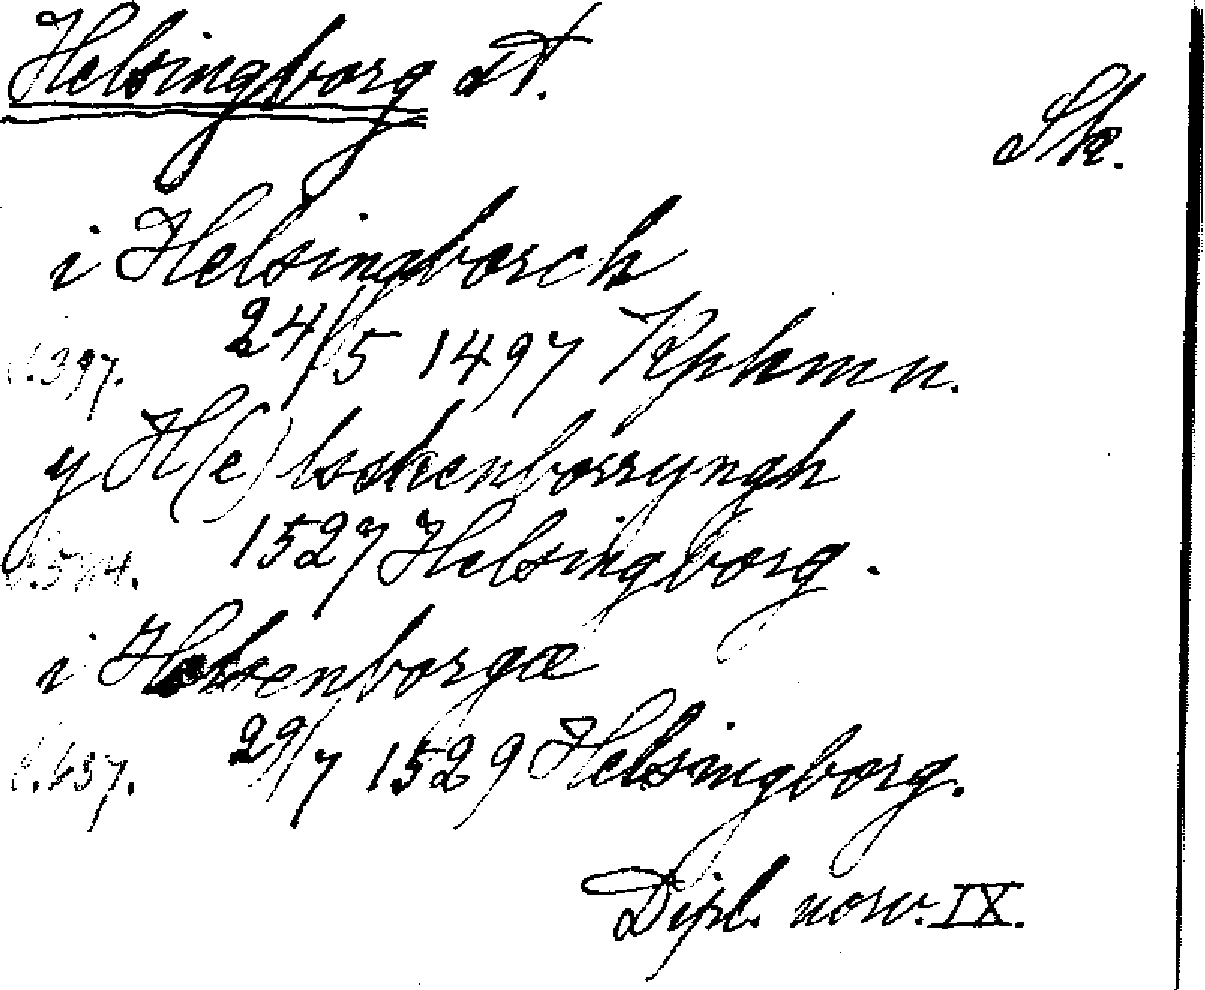 Helsingborg st.
Sk.
i Helsingborch
s.397. 24/5 1497 Kphmn.
y H(e)lsskenborryngh
1527 Helsingborg.
i Helssenborgæ
29/7 1529 Helsingborg.
Dipl. norv. IX.